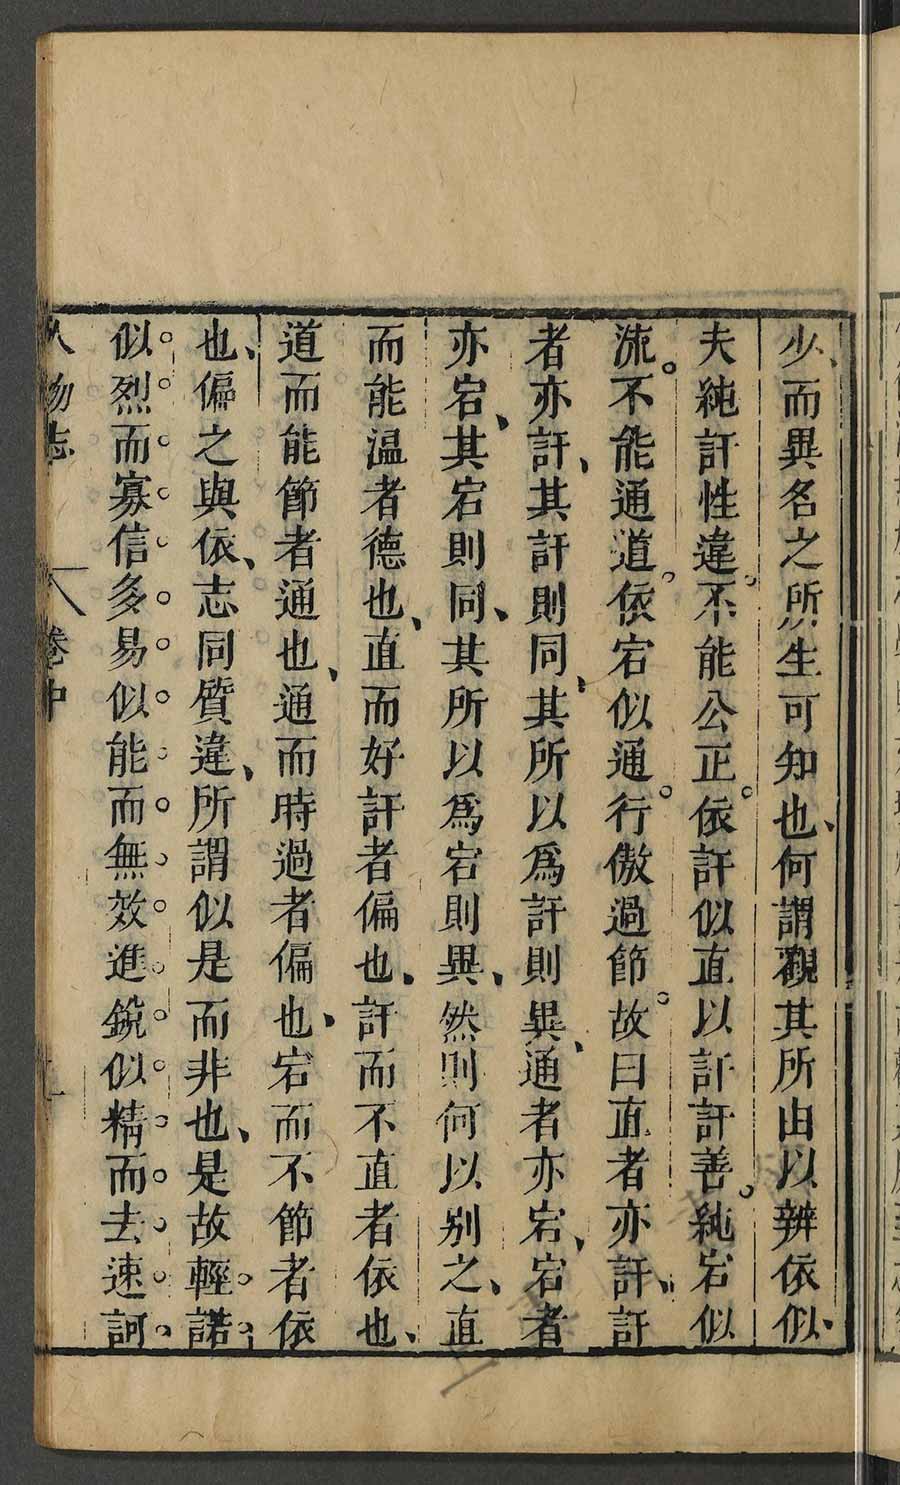 少而異名之所生可知也何謂觀其所由以辨依似
夫純訐性違不能公正依訐似直以訐訐善純宕似
流不能通道依宕似通行傲過節故曰直者亦訐訐
者亦訐其訐則同其所以爲訐則異通者亦宕宕者
亦宕其宕則同其所以爲宕則異然則何以别之直
而能温者德也直而好訐者偏也訐而不直者依也
道而能節者通也通而時過者偏也宕而不節者依
也偏之與依志同質違所謂似是而非也是故輕諾
似烈而寡信多易似能而無效進銳似精而去速訶
人物志
卷中